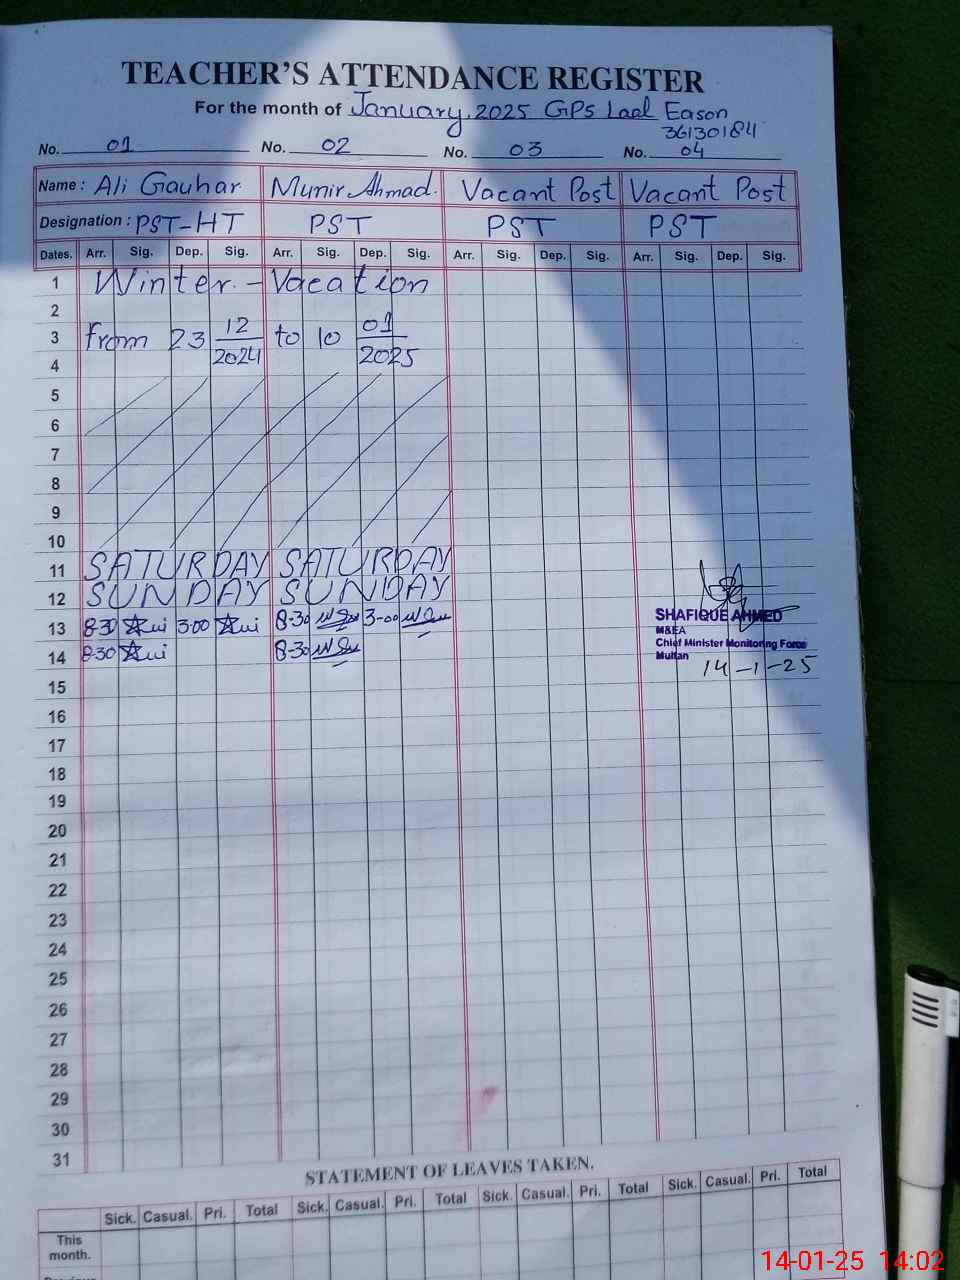 TEACHER'S ATTENDANCE REGISTER
For the month of January, 2025 GPS Laal Eason
36130184
No. 01 No. 02 No. 03 No. 04
Name : Ali Gauhar Munir Ahmad. Vacant Post Vacant Post
Designation : PST-HT PST PST PST
Dates. Arr. Sig. Dep. Sig. Arr. Sig. Dep. Sig. Arr. Sig. Dep. Sig. Arr. Sig. Dep. Sig.
1 Winter - Vacation
2
3 from 23 12/2024 to 10 01/2025
4
5
6
7
8
9
10
11 SATURDAY SATURDAY
12 SUNDAY SUNDAY
13 8-30 3-00 8-30 3-00
14 8-30 8-30
SHAFIQUE AHMED
M&EA
Chief Minister Monitoring Force
Multan
14-1-25
15
16
17
18
19
20
21
22
23
24
25
26
27
28
29
30
31
STATEMENT OF LEAVES TAKEN.
Sick. Casual. Pri. Total Sick. Casual. Pri. Total Sick. Casual. Pri. Total Sick. Casual. Pri. Total
This
month.
14-01-25 14:02